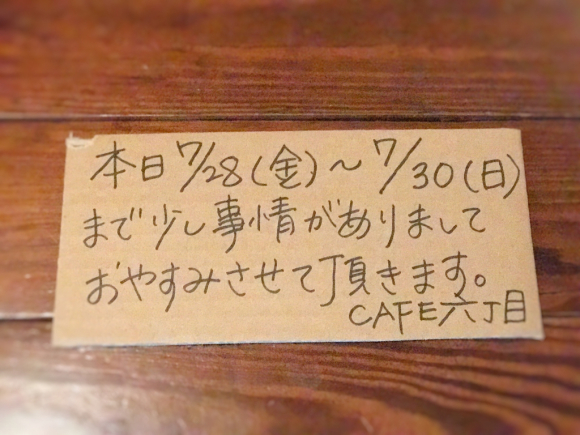 本日7/28(金)〜7/30(日)
まで少し事情がありまして
おやすみさせて頂きます。
CAFE六丁目